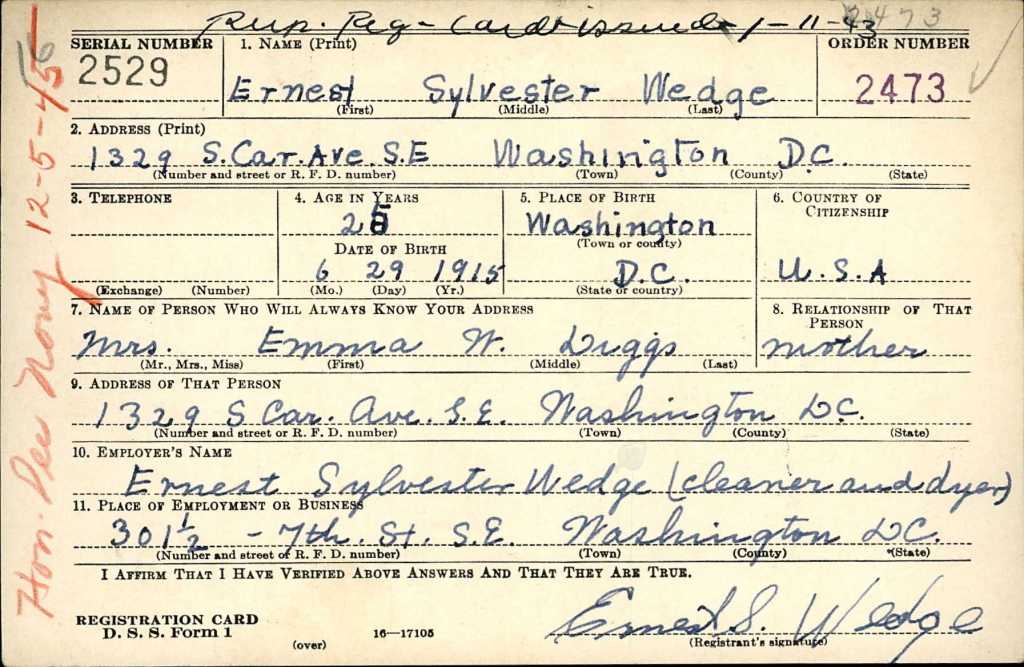 Dup. Reg - Card issued - 1-11-43
2473
SERIAL NUMBER
2529
1. NAME (Print)
Ernest Sylvester Wedge
(First) (Middle) (Last)
ORDER NUMBER
2473
2. ADDRESS (Print)
1329 S.Car.Ave. S.E Washington D.C.
(Number and street or R. F. D. number) (Town) (County) (State)
3. TELEPHONE
(Exchange) (Number)
4. AGE IN YEARS
25
DATE OF BIRTH
6 29 1915
(Mo.) (Day) (Yr.)
5. PLACE OF BIRTH
Washington
(Town or county)
D.C.
(State or country)
6. COUNTRY OF
CITIZENSHIP
U.S.A
7. NAME OF PERSON WHO WILL ALWAYS KNOW YOUR ADDRESS
Mrs. Emma W. Diggs
(Mr., Mrs., Miss) (First) (Middle) (Last)
8. RELATIONSHIP OF THAT
PERSON
mother
9. ADDRESS OF THAT PERSON
1329 S Car. Ave. S.E. Washington D.C.
(Number and street or R. F. D. number) (Town) (County) (State)
10. EMPLOYER'S NAME
Ernest Sylvester Wedge (cleaner and dyer)
11. PLACE OF EMPLOYMENT OR BUSINESS
301½ - 7th. St. S.E. Washington D.C.
(Number and street of R. F. D. number) (Town) (County) (State)
I AFFIRM THAT I HAVE VERIFIED ABOVE ANSWERS AND THAT THEY ARE TRUE.
REGISTRATION CARD
D. S. S. Form 1
(over)
16—17105
Ernest S. Wedge
(Registrant's signature)
Hon. 12-5-45